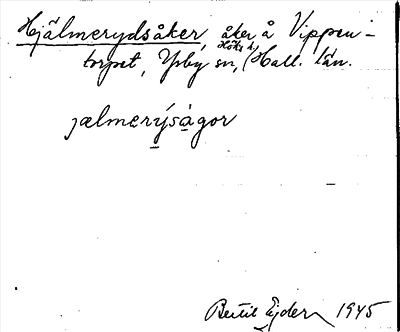 Hjälmerydsåker, åker å Vippen-
Höks hd
torpet, Ysby sn, Hall. län.
jælmerýságor
Bertil Ejder 1945